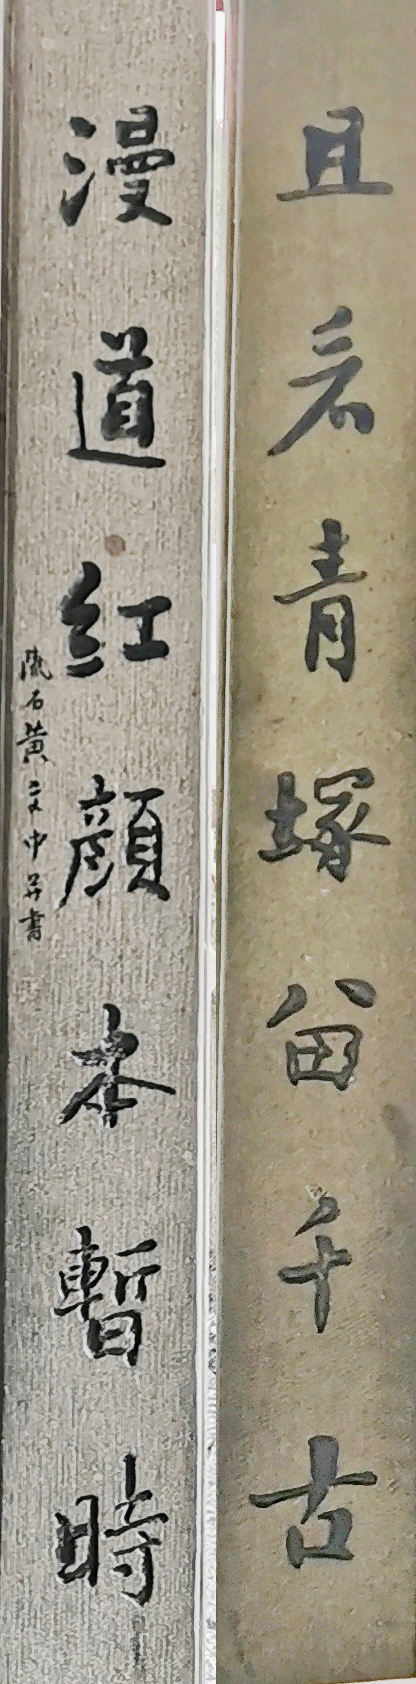 且看青塚留千古
漫道紅顏本暫時
隴右黃文中并書